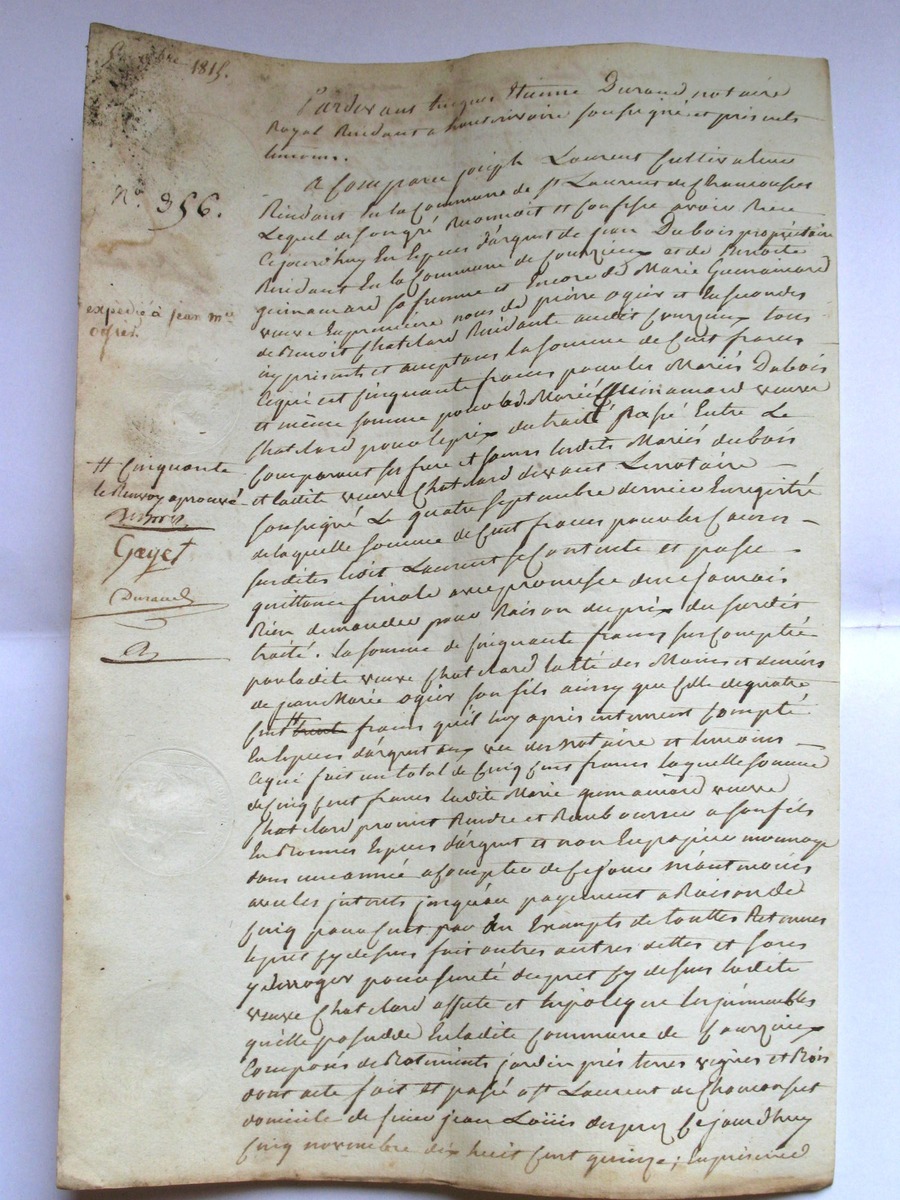 5 9bre 1815.
Pardevant Jacques Etienne Durand notaire
Royal Residant a hauterivoire soussigné et présents
temoins.
N° 356.
A Comparu joseph Laurent Cultivateur
Residant En la Commune de st Laurent de Chamousset
Lequel de son gré Reconnoit et Confesse avoir Reçu
Cejourd'huy En Espèces d'argent de jean Dubois propriétaire
Residant En la Commune de Courzieux et de Benoite
guinamard sa femme et Encore de Marie Guinamard
veuve En première noces de pierre ogier et En secondes
expédié à jean mie
ogier.
de Benoit Chatelard Residante audit Courzieux tous
icy présents et acceptans la somme de Cent francs
Ce qui est Cinquante francs pour les Mariés Dubois
et même somme pour lad. Marie Guinamard veuve
Chatelard pour le prix du traité Passé Entre Le
Comparant ses frere et soeurs lesdits Mariés dubois
et ladite veuve Chatelard devant Le notaire –
soussigné Le quatre Septembre dernier Enregistré
# Cinquante
le Renvoy aprouvé
Gayet
Durand
de laquelle somme de Cent francs pour les Causes –
susdites ledit Laurent se Contente et passe –
quittance finale avec promesse de ne jamais
Rien demander pour Raison du prix du susdit
traité. La somme de Cinquante francs sus Comptée
par ladite veuve Chatelard a été des Mains et deniers
de jean Marie ogier son fils ainsy que Celle de quatre
Cent # trente francs qu'il luy a présentement Compté
En Espèces d'argent aux vue des Notaire et temoins –
Ce qui fait un total de Cinq Cent francs laquelle somme
de Cinq Cent francs ladite Marie guinamard veuve
Chatelard promet Rendre et Rembourser a son fils
En Bonnes Espèces d'argent et non En papier monnoye
dans une année a Compter de Ce jour
avec les interets jusqu'au payement a Raison de
Cinq pour Cent par an Exempts de touttes Retenues
le pret cy dessus fait outre autres dettes et sans
y déroger pour sureté du pret cy dessus ladite
veuve Chatelard affecte et hipoteque les jmmeubles
qu'elle possedde En ladite Commune de Courzieux
Composés de Batiments jardin prés terres vignes et Bois
dont acte fait et passé a st Laurent de Chamousset
domicile de sieur jean Louis Cejourd'huy
Cinq novembre dix huit Cent quinze; En présence